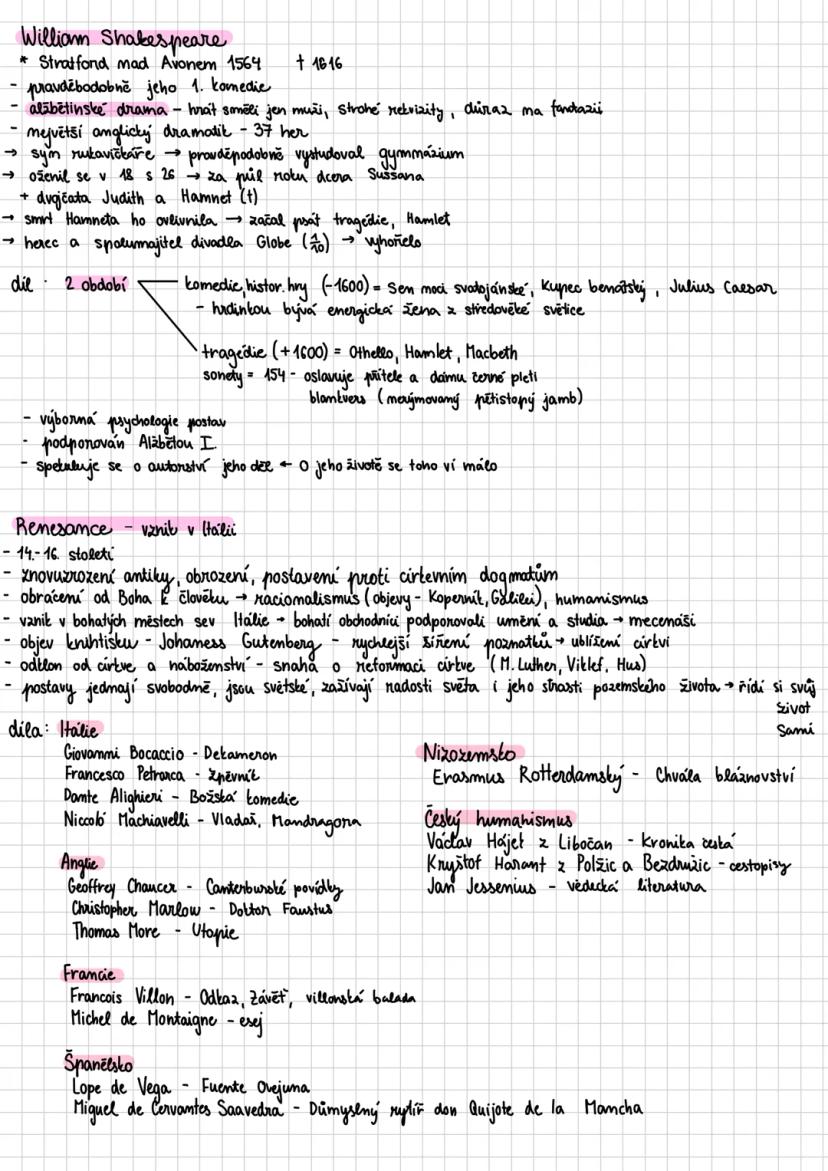 William Shakespeare
* Stratford nad Avonem 1564 † 1616
- pravděbodobně jeho 1. komedie
- alžbětinské drama – hrát směli jen muži, strohé rekvizity, důraz na fantazii
- největší anglický dramatik - 37 her
→ syn rukavičkáře → pravděpodobně vystudoval gymnázium
→ oženil se v 18 s 26 → za půl roku dcera Sussana
+ dvojčata Judith a Hamnet (†)
→ smrt Hamneta ho ovlivnila → začal psát tragédie, Hamlet
→ herec a spolumajitel divadla Globe (1/10) → vyhořelo
díl : 2 období
komedie, histor. hry (-1600) = Sen noci svatojánské, Kupec benátský, Julius Caesar
- hrdinkou bývá energická žena z středověké světice
tragédie (+1600) = Othello, Hamlet, Macbeth
sonety = 154 - oslavuje přítele a dámu černé pleti
blankvers (nerýmovaný pětistopý jamb)
- výborná psychologie postav
- podporován Alžbětou I.
- spekuluje se o autorství jeho děl ← o jeho životě se toho ví málo
Renesance – vznik v Itálii
- 14.-16. století
- znovuzrození antiky, obrození, postavení proti církevním dogmatům
- obrácení od Boha k člověku → racionalismus (objevy - Koperník, Galilei), humanismus
- vznik v bohatých městech sev Itálie → bohatí obchodníci podporovali umění a studia → mecenáši
- objev knihtisku - Johaness Gutenberg - rychlejší šíření poznatků → ublížení církvi
- odklon od církve a náboženství - snaha o reformaci církve (M. Luther, Viklef, Hus)
- postavy jednají svobodně, jsou světské, zažívají radosti světa i jeho strasti pozemského života → řídí si svůj
život
sami
díla: Itálie
Giovanni Bocaccio - Dekameron
Francesco Petrarca - Zpěvník
Dante Alighieri – Božská komedie
Niccoló Machiavelli - Vladař, Mandragora
Anglie
Geoffrey Chaucer - Canterburské povídky
Christopher Marlow - Doktor Faustus
Thomas More - Utopie
Francie
Francois Villon - Odkaz, Závěť, villonská balada
Michel de Montaigne - esej
Španělsko
Lope de Vega - Fuente Ovejuna
Miguel de Cervantes Saavedra - Důmyslný rytíř don Quijote de la Mancha
Nizozemsko
Erasmus Rotterdamský - Chvála bláznovství
Český humanismus
Václav Hájek z Libočan - Kronika česká
Kryštof Harant z Polžic a Bezdružic - cestopisy
Jan Jessenius - vědecká literatura